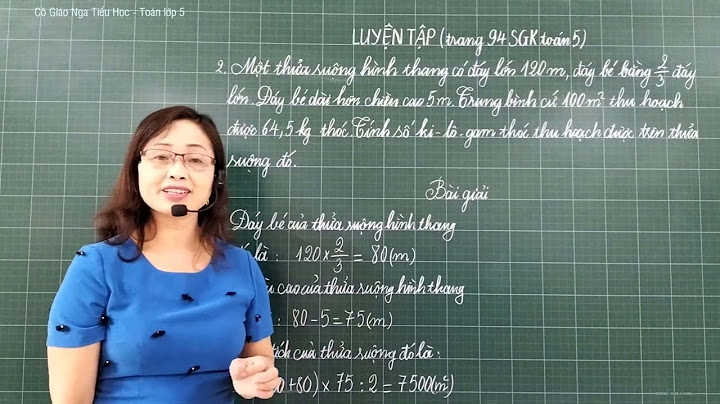 Cô Giáo Nga Tiểu Học - Toán lớp 5
LUYỆN TẬP (trang 94 SGK toán 5)
2. Một thửa ruộng hình thang có đáy lớn 120 m, đáy bé bằng 2/3 đáy
lớn. Đáy bé dài hơn chiều cao 5 m. Trung bình cứ 100 m² thu hoạch
được 64,5 kg thóc. Tính số ki-lô-gam thóc thu hoạch được trên thửa
ruộng đó.
Bài giải
Đáy bé của thửa ruộng hình thang
là : 120 × 2/3 = 80 (m)
cao của thửa ruộng hình thang
: 80 - 5 = 75 (m)
tích của thửa ruộng đó là :
0 + 80) × 75 : 2 = 7500 (m²)